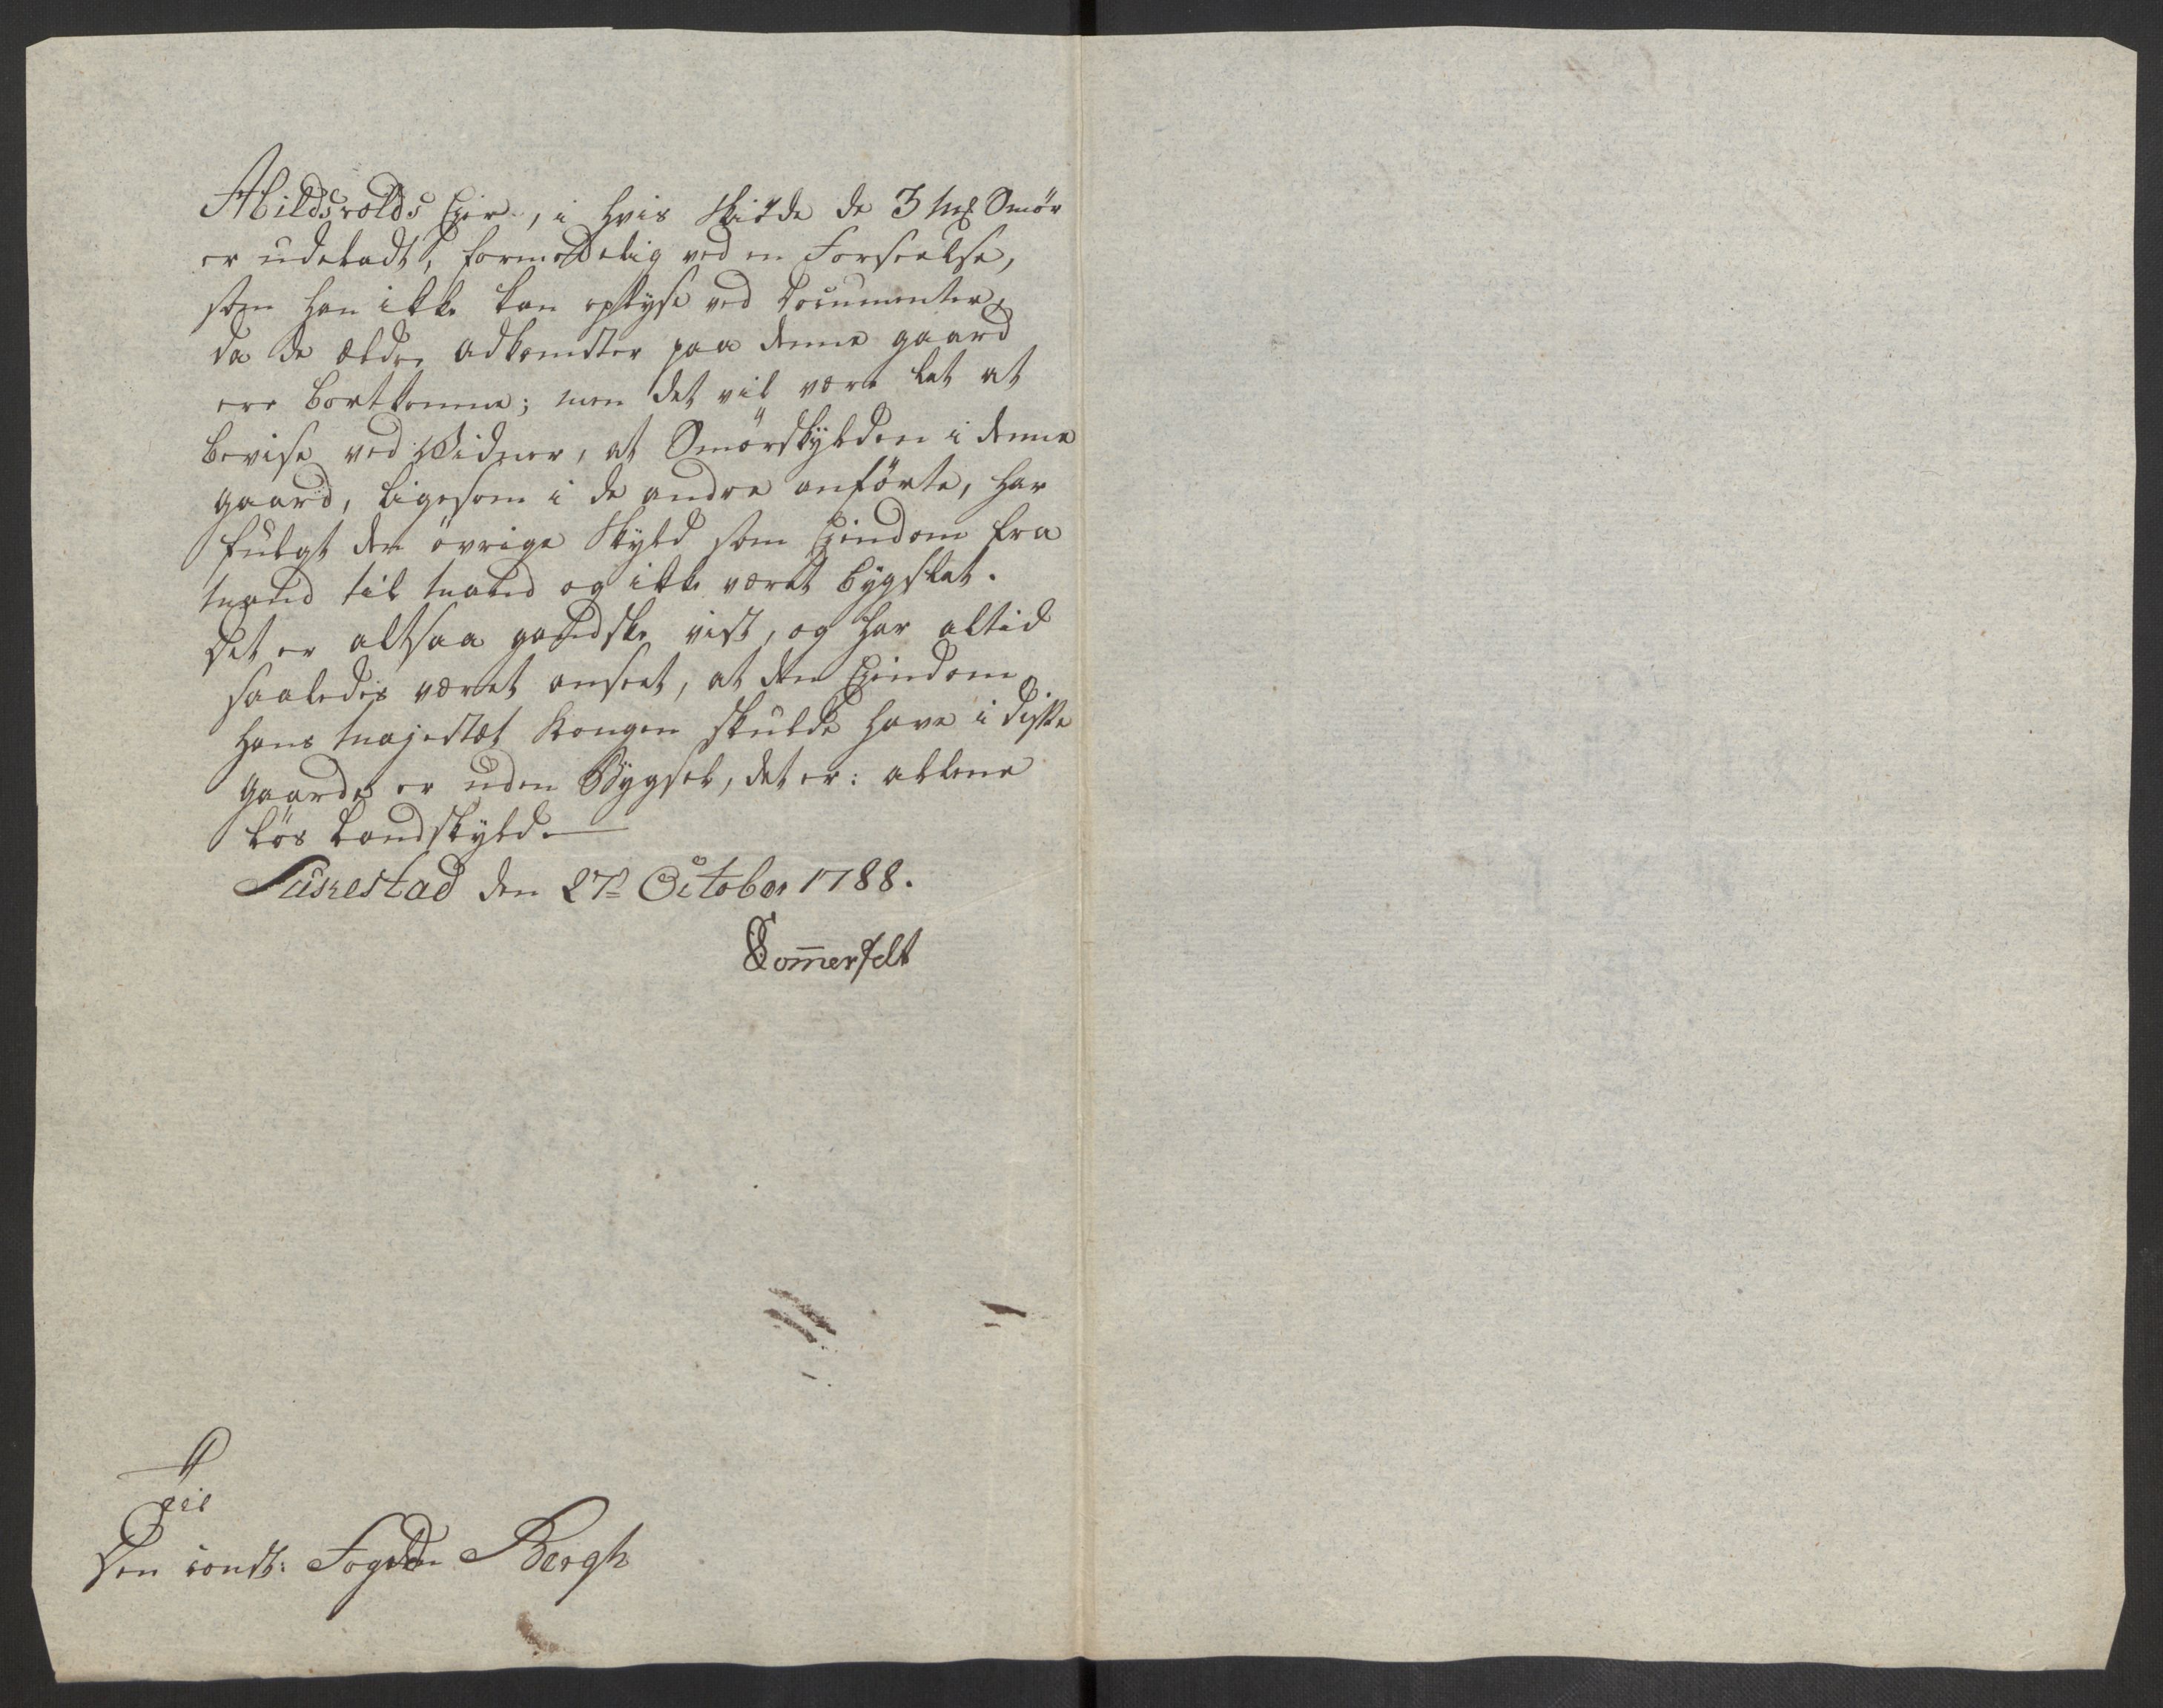 Abildsvolds Eier, i hvis Skiöde de 3 mk Smör
er udeladt, formodelig ved en Forseelse,
som han ikke kan oplyse ved Documenter,
da de ældre Adkomster paa denne gaard
ere bortkomne; men det vil være let at
bevise ved Vidner, at Smörskylden i denne
gaard, ligesom i de andre anförte, har
fulgt den övrige Skyld som Eiendom fra
mand til mand og ikke været bygslet.
Det er altsaa gandske vist, og har altid
saaledes været anseet, at den Eiendom
Hans Majestæt Kongen skulde have i disse
gaarde er uden Bygsel, det er: allene
lös Landskyld.
den 27de October 1788.
Sommerfelt
Til
Den const: Fogden Bergh